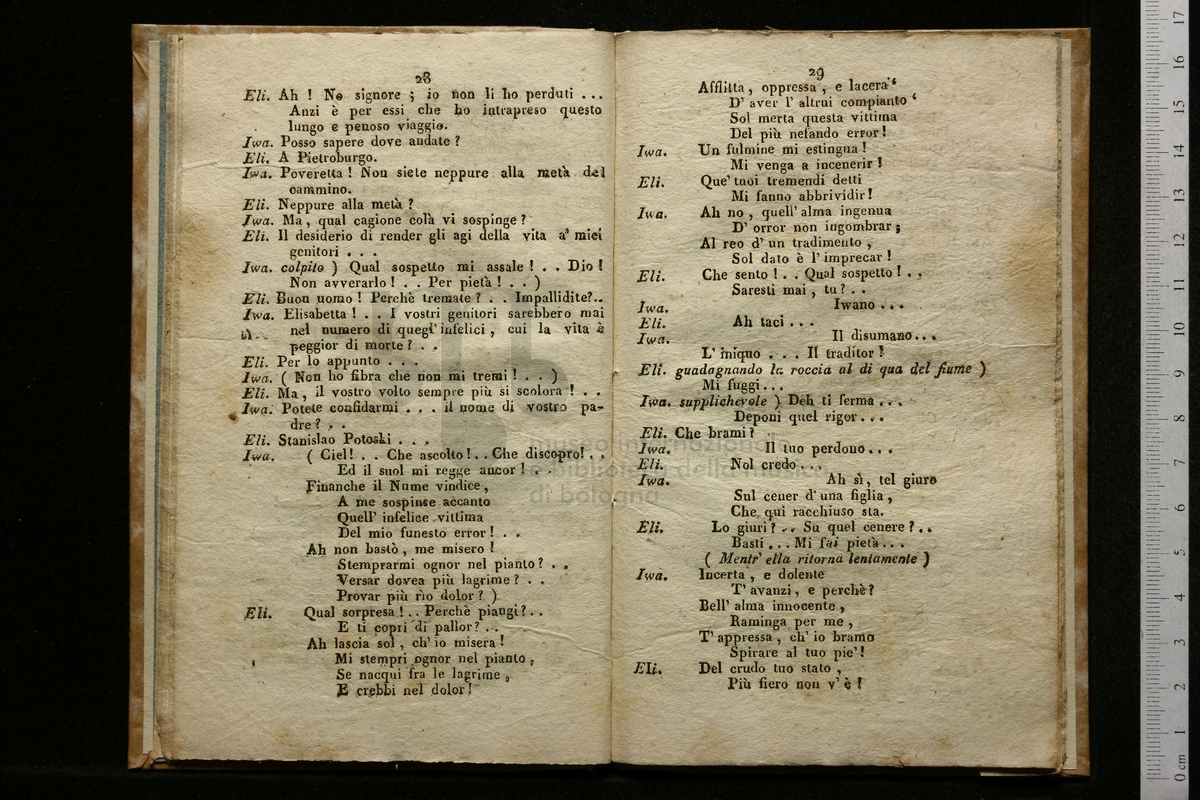 28
Eli. Ah ! No signore ; io non li ho perduti ...
Anzi è per essi che ho intrapreso questo
lungo e penoso viaggio.
Iwa. Posso sapere dove andate ?
Eli. A Pietroburgo.
Iwa. Poveretta ! Non siete neppure alla metà del
cammino.
Eli. Neppure alla metà ?
Iwa. Ma , qual cagione colà vi sospinge ?
Eli. Il desiderio di render gli agi della vita a' miei
genitori . . .
Iwa. colpito ) Qual sospetto mi assale ! . . Dio !
Non avverarlo ! . . Per pietà ! . . )
Eli. Buon uomo ! Perchè tremate ? . . Impallidite?..
Iwa. Elisabetta ! . . I vostri genitori sarebbero mai
nel numero di quegl' infelici , cui la vita è
peggior di morte ? . .
Eli. Per lo appunto . . .
Iwa. ( Non ho fibra che non mi tremi ! . . )
Eli. Ma , il vostro volto sempre più si scolora ! . .
Iwa. Potete confidarmi . . . il nome di vostro pa-
dre ? . .
Eli. Stanislao Potoski . . .
Iwa. ( Ciel! . . Che ascolto!. . Che discopro! . .
Ed il suol mi regge ancor ! . .
Finanche il Nume vindice ,
A me sospinse accanto
Quell' infelice vittima
Del mio funesto error ! . .
Ah non bastò , me misero !
Stemprarmi ognor nel pianto ? . .
Versar dovea più lagrime ? . .
Provar più rio dolor ? )
Eli. Qual sorpresa ! . . Perchè piangi ? . .
E ti copri di pallor ? . .
Ah lascia sol , ch' io misera !
Mi stempri ognor nel pianto ,
Se nacqui fra le lagrime ,
E crebbi nel dolor !
29
Afflitta , oppressa , e lacera'
D' aver l' altrui compianto '
Sol merta questa vittima
Del più nefando error !
Iwa. Un fulmine mi estingua !
Mi venga a incenerir !
Eli. Que' tuoi tremendi detti
Mi fanno abbrividir !
Iwa. Ah no , quell' alma ingenua
D' orror non ingombrar ;
Al reo d' un tradimento ,
Sol dato è l' imprecar !
Eli. Che sento ! . . Qual sospetto ! . .
Saresti mai , tu ? . .
Iwa. Iwano . . .
Eli. Ah taci . . .
Iwa. Il disumano . . .
L' iniquo . . . Il traditor !
Eli. guadagnando la roccia al di qua del fiume )
Mi fuggi . . .
Iwa. supplichevole ) Deh ti ferma . . .
Deponi quel rigor . . .
Eli. Che brami ?
Iwa. Il tuo perdono . . .
Eli. Nol credo . . .
Iwa. Ah sì , tel giuro
Sul cener d' una figlia ,
Che qui racchiuso sta.
Eli. Lo giuri ? . . Su quel cenere ? . .
Basti . . . Mi fai pietà . . .
( Mentr' ella ritorna lentamente )
Iwa. Incerta , e dolente
T' avanzi , e perchè ?
Bell' alma innocente ,
Raminga per me ,
T' appressa , ch' io bramo
Spirare al tuo pie' !
Eli. Del crudo tuo stato ,
Più fiero non v' è !
museo internazionale
e biblioteca della musica
di bologna
0 cm 1 2 3 4 5 6 7 8 9 10 11 12 13 14 15 16 17